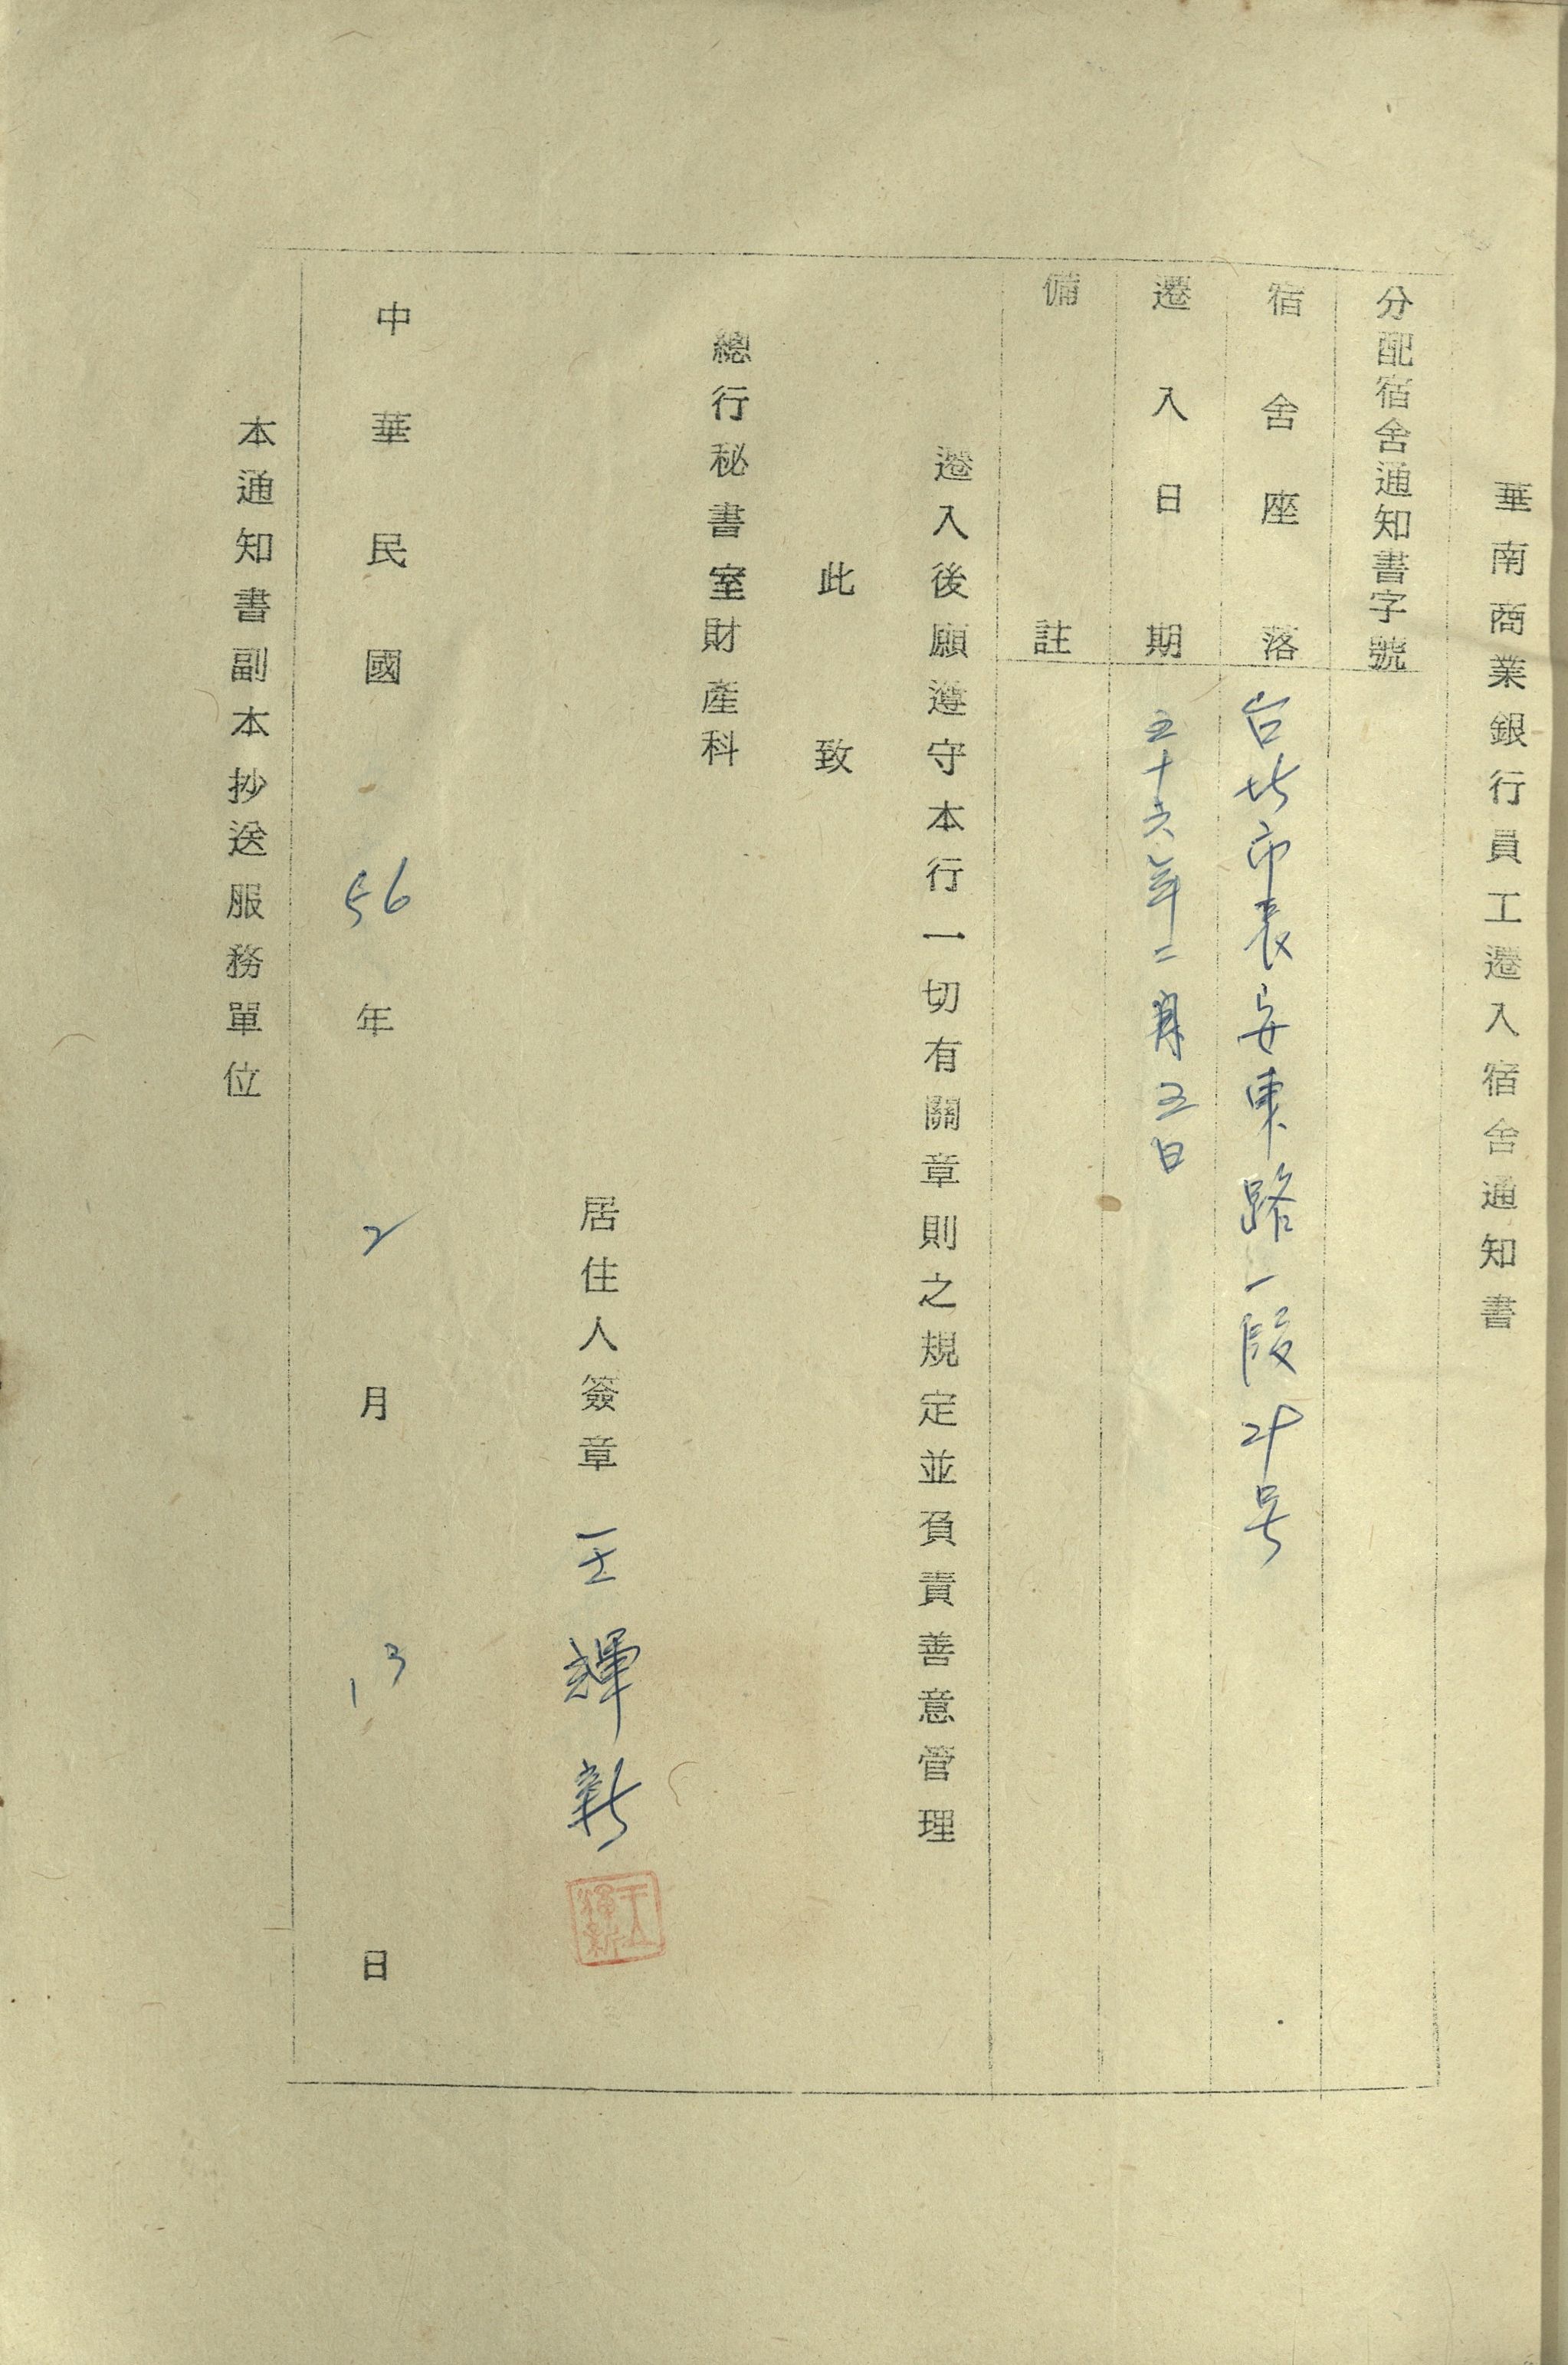 華南商業銀行員工遷入宿舍通知書
分配宿舍通知書字號
宿舍座落 台北市長安東路一段21号
遷入日期 五十六年二月五日
備註
遷入後願遵守本行一切有關章則之規定並負責善意管理
此致
總行秘書室財產科
居住人簽章 王輝新
王輝新
中華民國56年2月13日
本通知書副本抄送服務單位